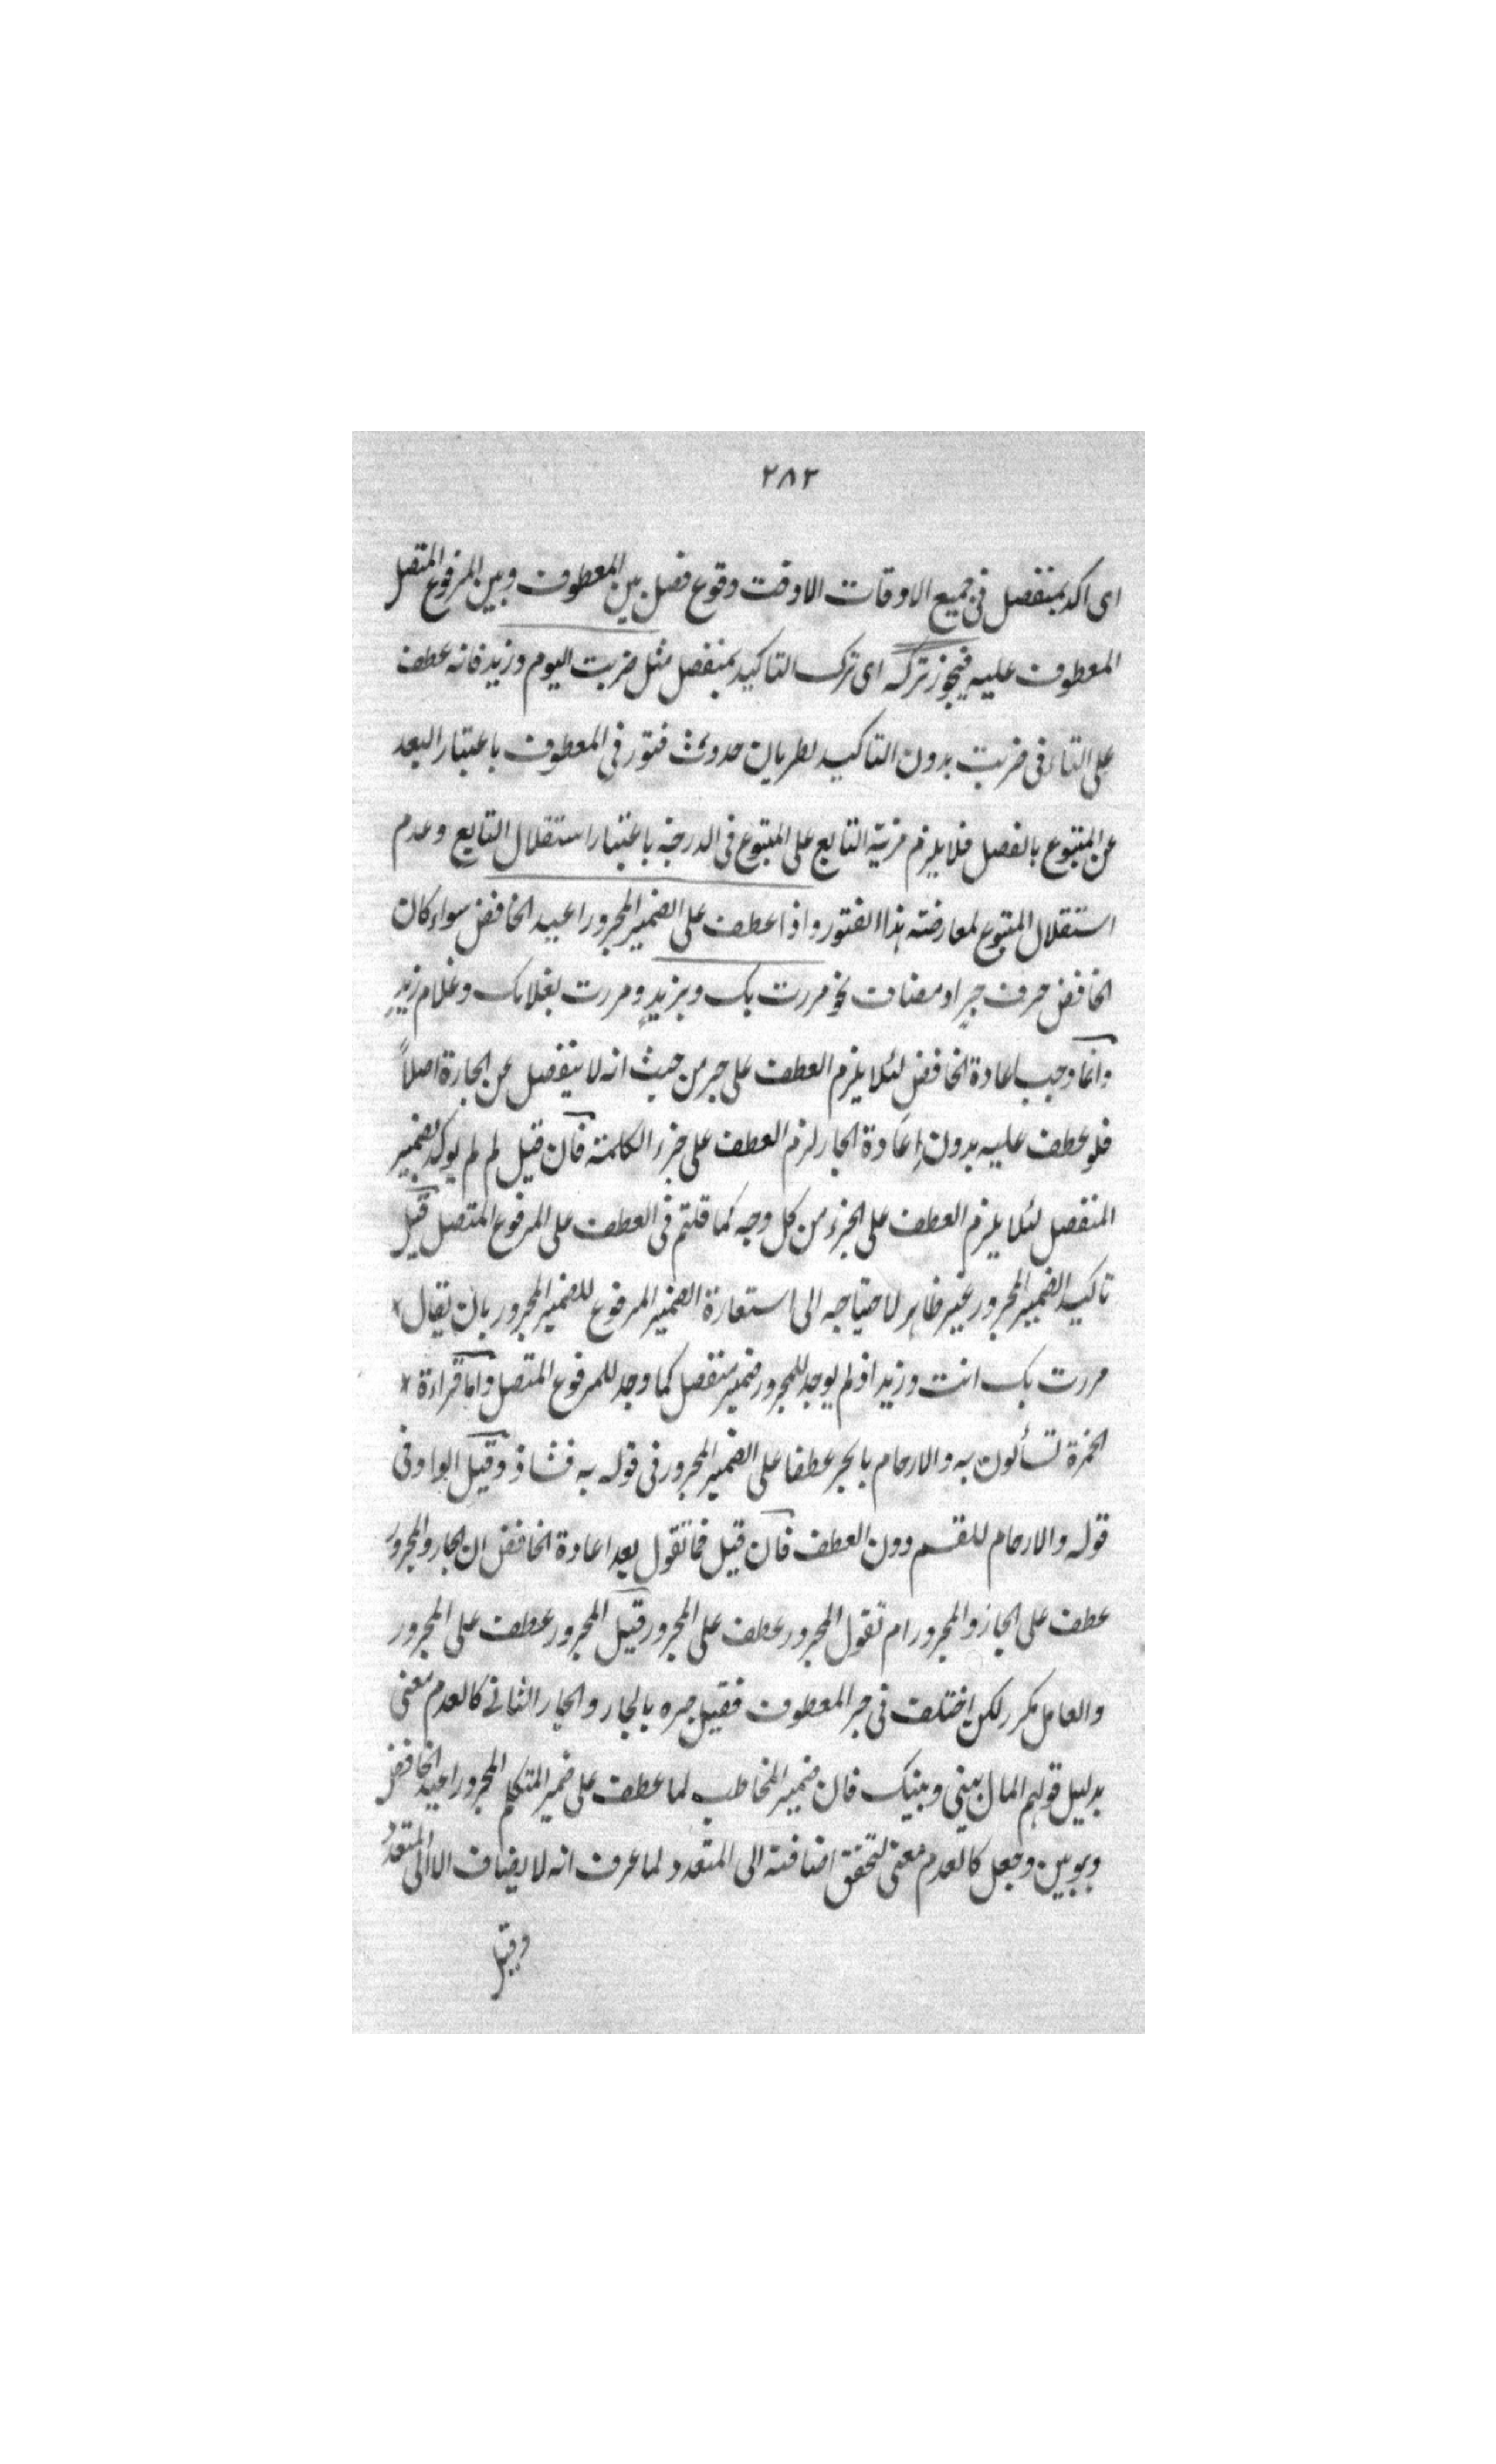 ٢٨٢
اى اكد بمنفصل فى جميع الاوقات الا وقت وقوع فصل بين المعطوف وبين المرفوع المتصل
المعطوف عليه فيجوز تركه اى ترك التاكيد بمنفصل مثل ضربت اليوم وزيد فانه عطف
على التاء فى ضربت بدون التاكيد لطريان حدوث فتور فى المعطوف باعتبار البعد
عن المتبوع بالفصل فلا يلزم مزية التابع على المتبوع فى الدرجة باعتبار استقلال التابع وعدم
استقلال المتبوع لمعارضته هذا الفتور واذا عطف على الضمير المجرور اعيد الخافض سواء كان
الخافض حرف جرٍ او مضاف نحو مررت بك وبزيدٍ ومررت بغلامك وغلام زيدٍ
وانما وجب اعادة الخافض لئلا يلزم العطف على جر من حيث انه لا ينفصل عن الجارة اصلاً
فلو عطف عليه بدون اِعَادة الجار لزم العطف على جزء الكلمة فان قيل لم لم يوكد بضمير
المنفصل لئلا يلزم العطف على الجزء من كل وجه كما قلتم فى العطف على المرفوع المتصل قيل
تاكيد الضمير المجرور غير ظاهر لاحتياجه الى استعارة الضمير المرفوع للضمير المجرور بان يقال
مررت بك انت وزيد اذ لم يوجد للمجرور ضمير منفصل كما وجد للمرفوع المتصل واما قراءة
الحمزة تسألون به والارحام بالجر عطفا على الضمير المجرور فى قوله به فشاذ وقيل الواو فى
قوله والارحام للقسم دون العطف فان قيل فما تقول بعد اعادة الخافض ان الجار والمجرور
عطف على الجار والمجرور ام تقول المجرور عطف على المجرور قيل المجرور عطف على المجرور
والعامل مكرر لكن اختلف فى جر المعطوف فقيل جره بالجار والجار الثانى كالعدم معنى
بدليل قولهم المال بينى وبينك فان ضمير المخاطب لما عطف على ضمير المتكلم المجرور اعيد الخافض
وهو بين وجعل كالعدم معنى لتحقق اضافته الى المتعدد لما عرف انه لا يضاف الا الى المتعدد
وقيل